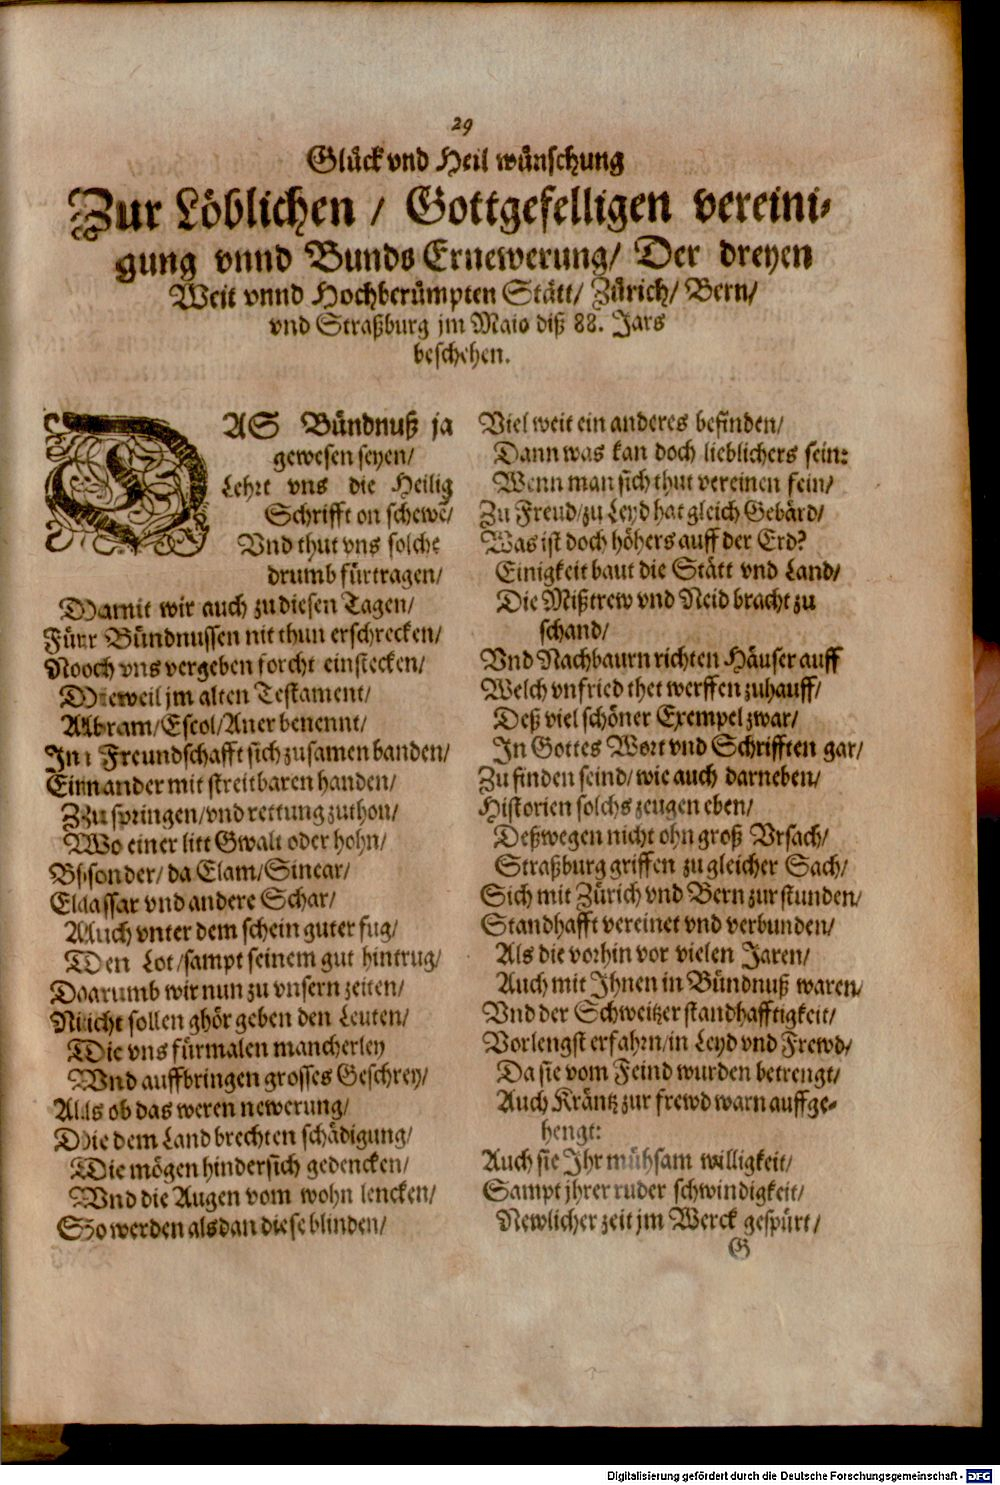 29
Glück vnd Heil wünschung
Zur Löblichen / Gottgefelligen vereini-
gung vnnd Bunds Ernewerung/ Der dreyen
Weit vnnd Hochberümpten Stätt/ Zürich/ Bern/
vnd Straßburg jm Maio diß 88. Jars
beschehen.
DAS Bündnuß ja
gewesen seyen/
Lehrt vns die Heilig
Schrifft on schewē/
Vnd thut vns solche
drumb fürtragen/
Damit wir auch zu diesen Tagen/
Für Bündnussen nit thun erschrecken/
Noch vns vergeben forcht einstecken/
Dieweil jm alten Testament/
Abram/ Escol/ Aner benennt/
In Freundschafft sich zusamen banden/
Einander mit streitbaren handen/
Zu springen/ vnd rettung zuthon/
Wo einer litt Gwalt oder hohn/
Bsonder/ da Elam/ Sinear/
Elassar vnd andere Schar/
Auch vnter dem schein guter fug/
Den Lot/ sampt seinem gut hintrug/
Darumb wir nun zu vnsern zeiten/
Nicht sollen ghör geben den Leuten/
Die vns fürmalen mancherley
Vnd auffbringen grosses Geschrey/
Als ob das weren newerung/
Die dem Land brechten schädigung/
Die mögen hindersich gedencken/
Vnd die Augen vom wohn lencken/
So werden alsdan diese blinden/
Viel weit ein anderes befinden/
Dann was kan doch lieblichers sein:
Wenn man sich thut vereinen fein/
Zu Freud/ zu Leyd hat gleich Gebärd/
Was ist doch höhers auff der Erd?
Einigkeit baut die Stätt vnd Land/
Die Mißtrew vnd Neid bracht zu
schand/
Vnd Nachbaurn richten Häuser auff
Welch vnfried thet werffen zuhauff/
Deß viel schöner Exempel zwar/
In Gottes Wort vnd Schrifften gar/
Zu finden seind/ wie auch darneben/
Historien solchs zeugen eben/
Deßwegen nicht ohn groß Vrsach/
Straßburg griffen zu gleicher Sach/
Sich mit Zürich vnd Bern zur stunden/
Standhafft vereinet vnd verbunden/
Als die vorhin vor vielen Jaren/
Auch mit Ihnen in Bündnuß waren/
Vnd der Schweitzer standhafftigkeit/
Vorlengst erfahrn/ in Leyd vnd Frewd/
Da sie vom Feind wurden betrengt/
Auch Kräntz zur frewd warn auffge-
hengt:
Auch sie Ihr mühsam willigkeit/
Sampt jhrer ruder schwindigkeit/
Newlicher zeit jm Werck gespürt/
G
Digitalisierung gefördert durch die Deutsche Forschungsgemeinschaft - DFG